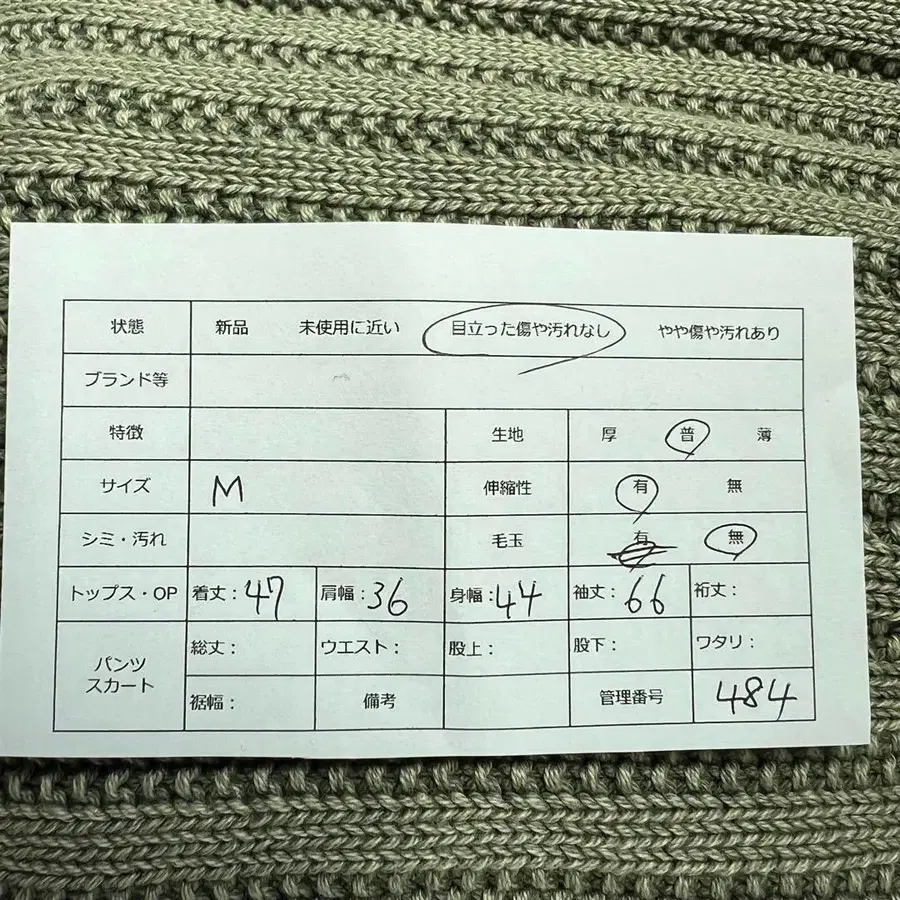 状態 新品 未使用に近い 目立った傷や汚れなし やや傷や汚れあり
ブランド等
特徴 生地 厚 普 薄
サイズ M 伸縮性 有 無
シミ・汚れ 毛玉 有 無
トップス・OP 着丈：47 肩幅：36 身幅：44 袖丈：66 裄丈：
パンツ スカート 総丈： ウエスト： 股上： 股下： ワタリ：
裾幅： 備考 管理番号 484